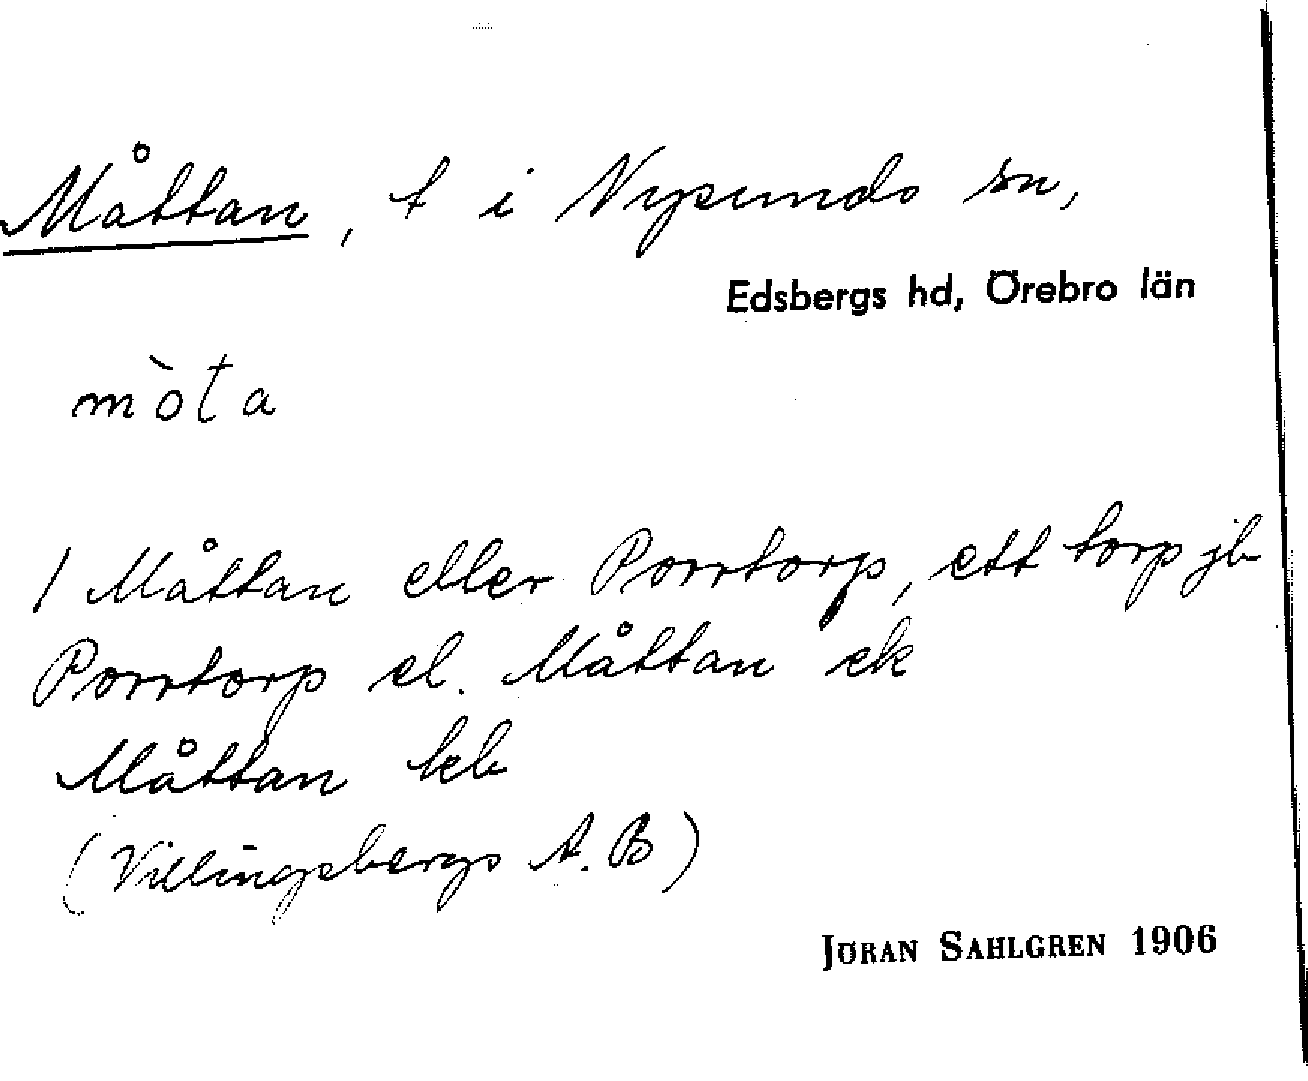 Måttan, t i Nysunds sn,
Edsbergs hd, Örebro län
mòta
1 Måttan eller Porrtorp, ett torp jb
Porrtorp el. Måttan ek
Måttan kb
(Villingsbergs A.B)
JÖRAN SAHLGREN 1906